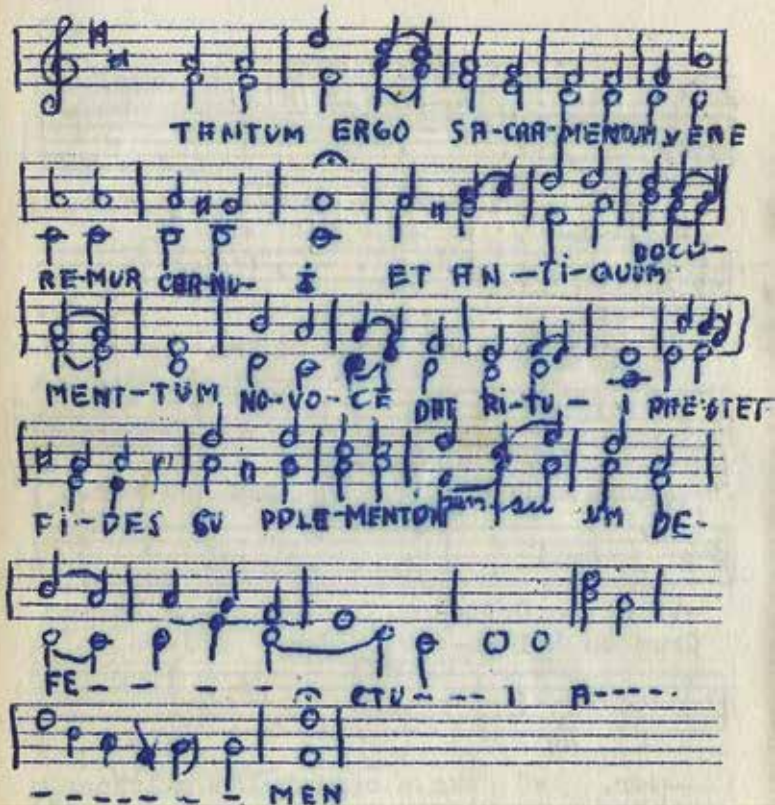 TANTUM ERGO SA-CRA-MENTUM VENE
RE-MUR CER-NU- I ET AN-TI-QUUM DOCU-
MENT-TUM NO-VO-CE DAT RI-TU-I PRESTET
FI-DES SU PPLE-MENTON sen-su UM DE-
FE- - - - - CTU- - - I A- - - - -
- - - - - - MEN